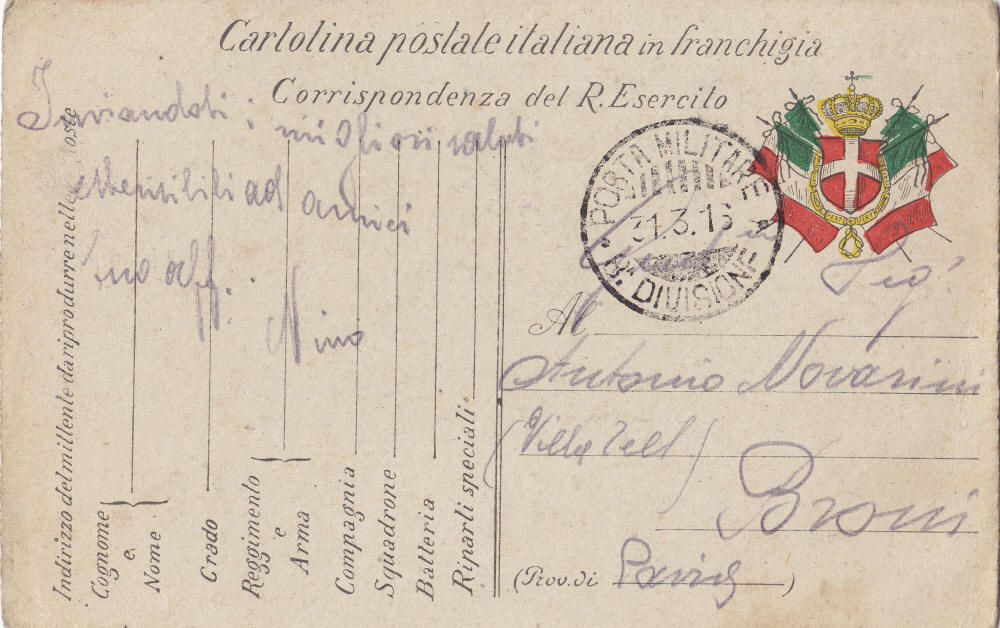 Cartolina postale italiana in franchigia
Corrispondenza del R. Esercito
Inviandoti i migliori saluti
estensibili ad amici
tuo aff.
Nino
Indirizzo del mittente da riprodurre nelle
Cognome e Nome
Grado
Reggimento e Arma
Compagnia
Squadrone
Batteria
Riparti speciali
POSTA MILITARE
31.3.16
8ª DIVISIONE
Sig.
Al
Antonio Novarini
(Villa Tell)
Broni
(Prov. di Pavia)